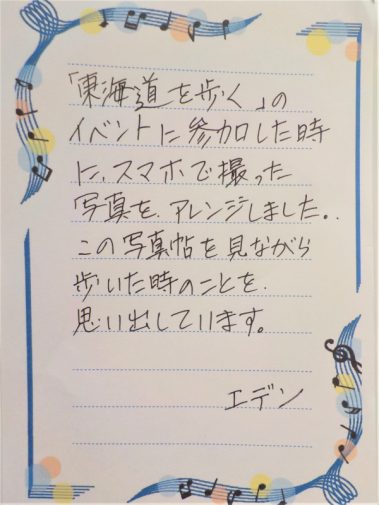 「東海道を歩く」の
イベントに参加した時
に、スマホで撮った
写真を、アレンジしました。
この写真帖を見ながら
歩いた時のことを、
思い出しています。
エデン